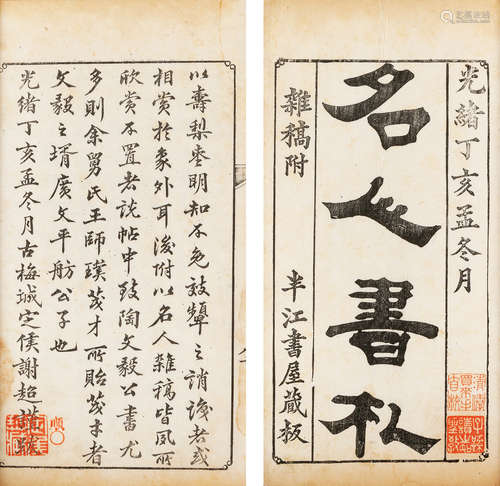 光緒丁亥孟冬月
名人書札
雜稿附
半江書屋藏板
以壽梨棗明知不免效顰之誚後者或
相賞於象外耳後附以名人雜稿皆夙所
欣賞不置者說帖中致陶文毅公書尤
多則余舅氏王師璞茂才所貽茂才者
文毅之壻廣文平舫公子也
光緒丁亥孟冬月古梅城定侯謝超謹跋